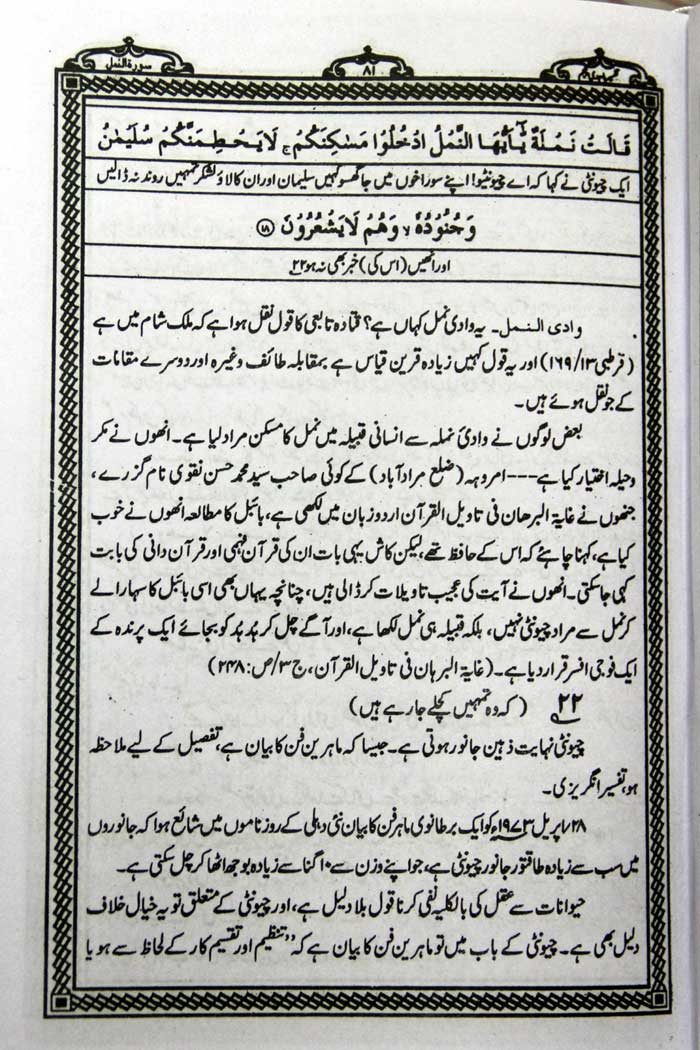 سورۃ النمل
۸۱
قَالَتْ نَمْلَةٌ يّٰٓاَيُّهَا النَّمْلُ ادْخُلُوْا مَسٰكِنَكُمْ ۚ لَا يَحْطِمَنَّكُمْ سُلَيْمٰنُ
ایک چیونٹی نے کہا کہ اے چیونٹیو! اپنے سوراخوں میں جا گھسو کہیں سلیمان اور ان کا لاؤ لشکر تمہیں روند نہ ڈالیں
وَجُنُوْدُهٗ ۙ وَهُمْ لَا يَشْعُرُوْنَ ⑱
اور انھیں (اس کی) خبر بھی نہ ہو ۲۲
وادی النمل۔ یہ وادی نمل کہاں ہے؟ قتادہ تابعی کا قول نقل ہوا ہے کہ ملک شام میں ہے
(قرطبی ۱۶۹/۱۳) اور یہ قول کہیں زیادہ قرین قیاس ہے بمقابلہ طائف وغیرہ اور دوسرے مقامات
کے جو نقل ہوئے ہیں۔
بعض لوگوں نے وادیٔ نملہ سے انسانی قبیلہ میں نمل کا مسکن مراد لیا ہے۔ انھوں نے مکر
وحیلہ اختیار کیا ہے --- امروہہ (ضلع مرادآباد) کے کوئی صاحب سید محمد حسن نقوی نام گزرے،
جنھوں نے غایۃ البرھان فی تاویل القرآن اردو زبان میں لکھی ہے، بائبل کا مطالعہ انھوں نے خوب
کیا ہے، کہنا چاہئے کہ اس کے حافظ تھے، لیکن کاش یہی بات ان کی قرآن فہمی اور قرآن دانی کی بابت
کہی جاسکتی۔ انھوں نے آیت کی عجیب تاویلات کر ڈالی ہیں، چنانچہ یہاں بھی اسی بائبل کا سہارا لے
کر نمل سے مراد چیونٹی نہیں، بلکہ قبیلہ بنی نمل لکھا ہے، اور آگے چل کر ہُد ہُد کو بجائے ایک پرندہ کے
ایک فوجی افسر قرار دیا ہے۔ (غایۃ البرہان فی تاویل القرآن، ج ۳/ص: ۲۴۸)
۲۲ (کہ وہ تمہیں کچلے جا رہے ہیں)
چیونٹی نہایت ذہین جانور ہوتی ہے۔ جیسا کہ ماہرین فن کا بیان ہے، تفصیل کے لیے ملاحظہ
ہو، تفسیر انگریزی۔
۲۸/اپریل ۱۹۷۳ء کو ایک برطانوی ماہر فن کا بیان نئی دہلی کے روزناموں میں شائع ہوا کہ جانوروں
میں سب سے زیادہ طاقتور جانور چیونٹی ہے، جو اپنے وزن سے ۱۰ گنا سے زیادہ بوجھ اٹھا کر چل سکتی ہے۔
حیوانات سے عقل کی بالکلیہ نفی کرنا قول بلا دلیل ہے، اور چیونٹی کے متعلق تو یہ خیال خلاف
دلیل بھی ہے۔ چیونٹی کے باب میں تو ماہرین فن کا بیان ہے کہ ”تنظیم اور تقسیم کار کے لحاظ سے ہو یا